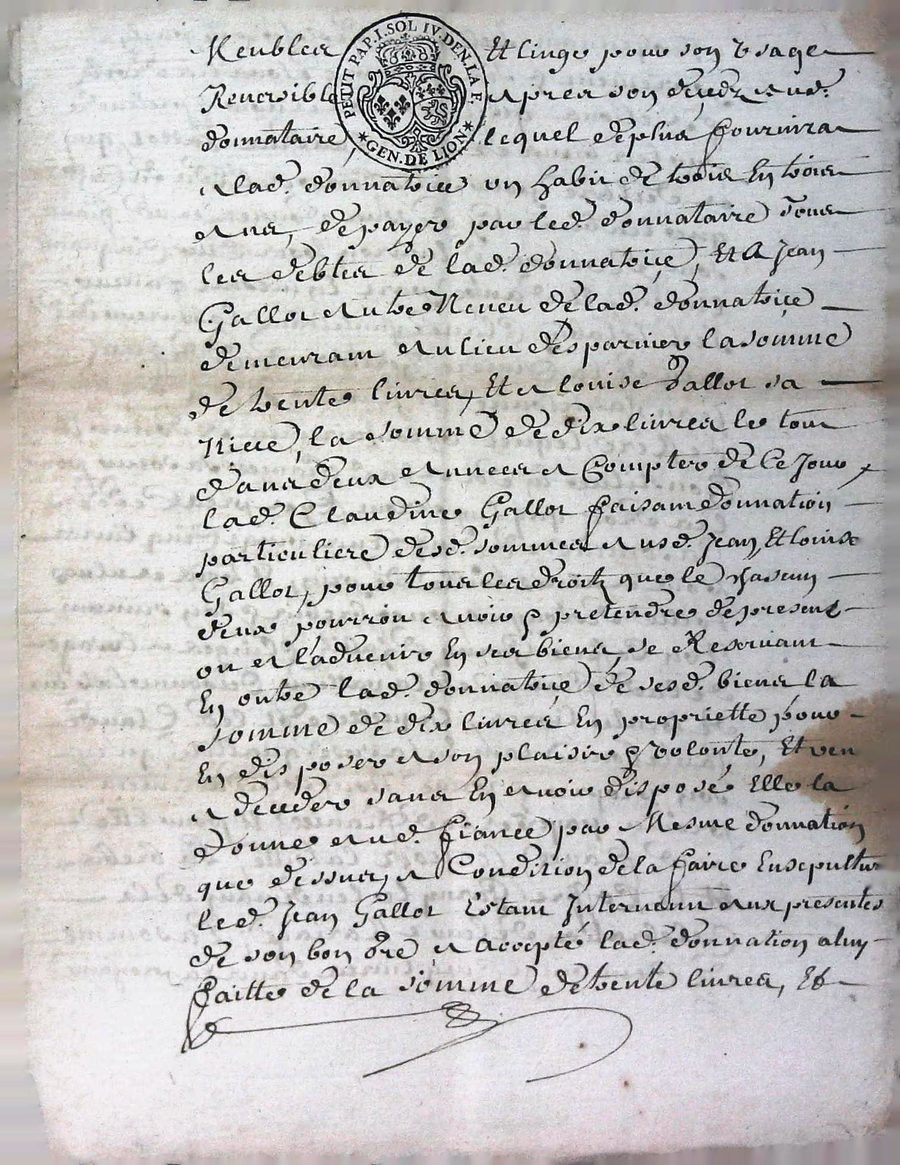 PETIT PAP. I. SOL IV. DEN. LA F.
GEN. DE LION
Meubles Et linge pour son Usage
Reversible apres son deced aud.
donnataire, lequel de plus fournira
a lad. donnatrice un habit de trois En trois
ans, de payer par led. donnataire tous
les debtes de lad. donnatrice, Et A Jean
Gallot autre Neveu de lad. donnatrice
demeurant au lieu desparnier la somme
de trente livres, Et a louise Gallot sa
Niece, la somme de dix livres le tout
dans deux annees a Compter de Ce Jour
lad. Claudine Gallot faisant donnation
particuliere desd. sommes ausd. Jean, Et louise
Gallot, pour tous les droitz que le chascun
deux pourron avoir & pretendre de present
ou a l'advenir En ses biens, se Reservant
En outre lad. donnatrice de sesd. biens la
somme de dix livres En propriette pour
En disposer a son plaisir & volonté, Et ven
a deceder sans En avoir disposé Elle la
donne aud. fiancé par Mesme donnation
que dessus, a Condition de la faire Ensepultur
led. Jean Gallot Estant Intervenu aux presentes
de son bon gre a accepté lad. donnation a luy
faitte de la somme de trente livres, Et